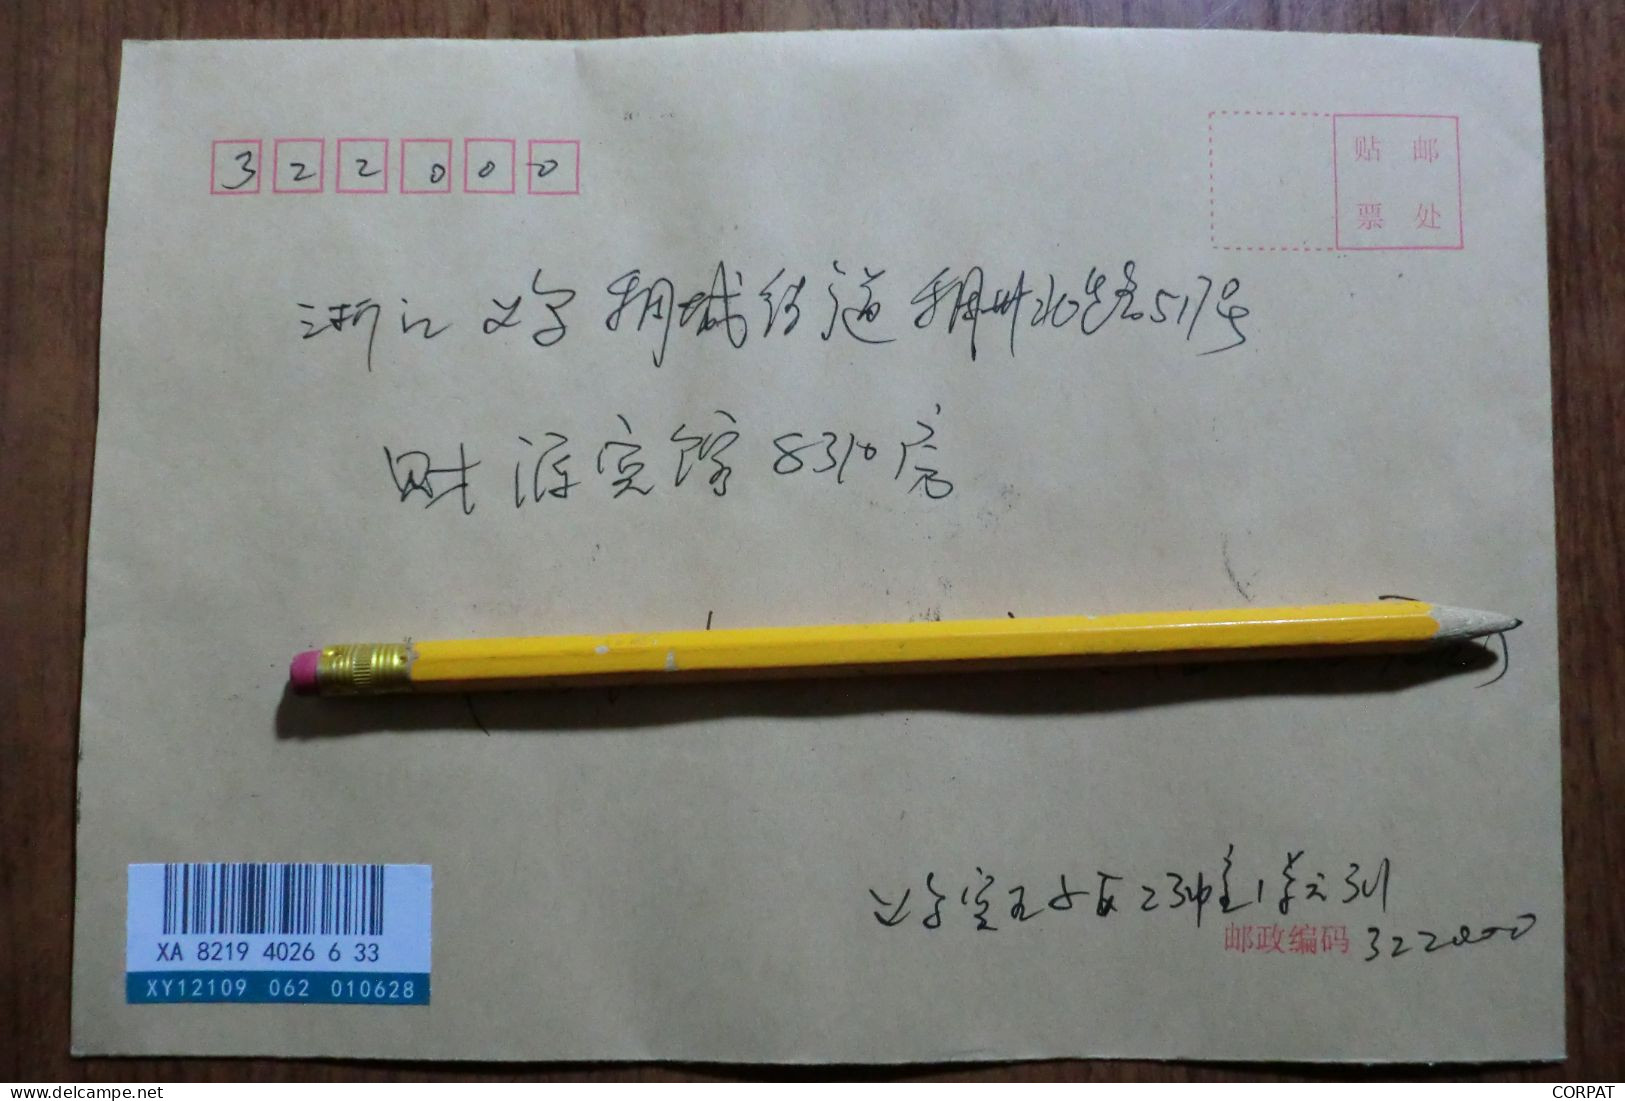 322000
贴 邮
票 处
浙江 义乌 稠城街道 稠州北路517号
财源宾馆 8310房
义乌 2
1单元301
邮政编码 322000
XA 8219 4026 6 33
XY12109 062 010628
CORPAT